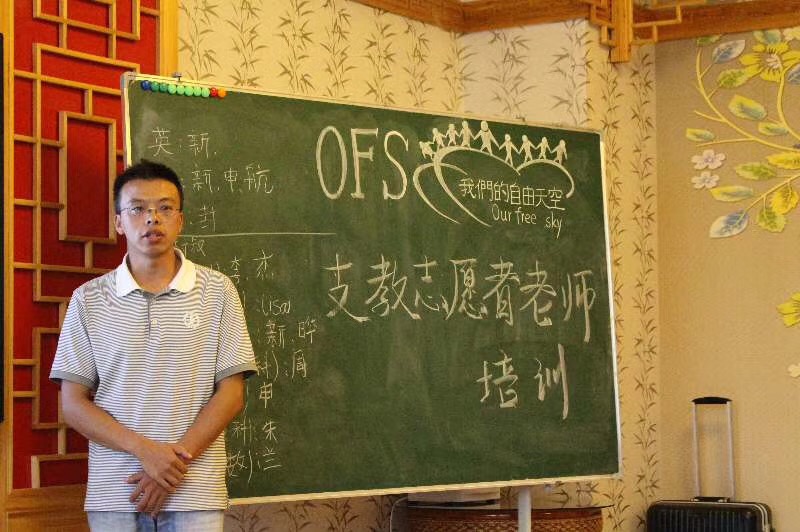 英:新.
:新.申.航
封
:李.杰
:Lisa
:新.晔
科):周
):申
科:朱
数):兰
OFS
我們的自由天空
Our free sky
支教志愿者老师
培训